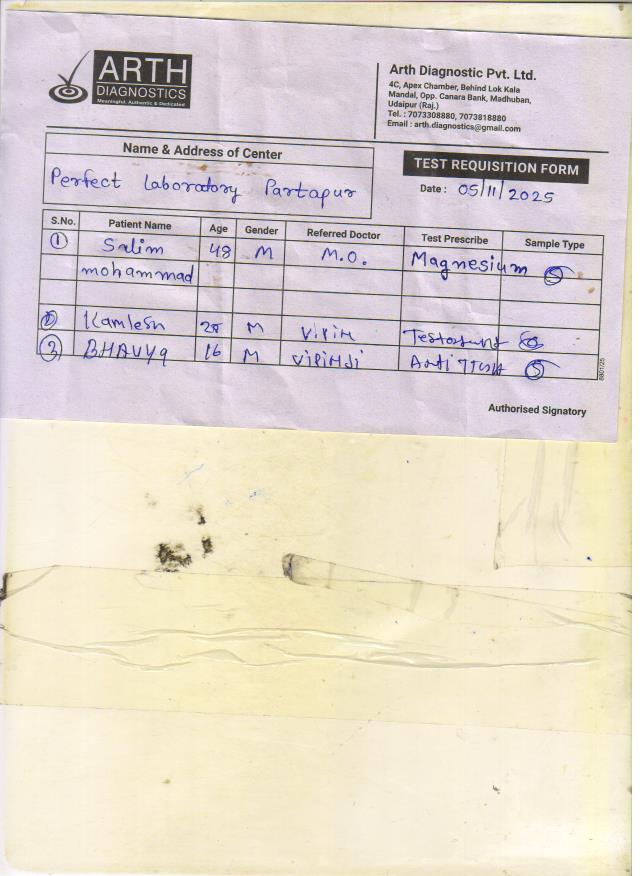 ARTH
DIAGNOSTICS
Meaningful, Authentic & Dedicated
Arth Diagnostic Pvt. Ltd.
4C, Apex Chamber, Behind Lok Kala
Mandal, Opp. Canara Bank, Madhuban,
Udaipur (Raj.)
Tel. : 7073308880, 7073818880
Email : arth.diagnostics@gmail.com
Name & Address of Center
Perfect Laboratory Partapur
TEST REQUISITION FORM
Date : 05/11/2025
S.No. Patient Name Age Gender Referred Doctor Test Prescribe Sample Type
1 Salim 48 M M.O. Magnesium S
mohammad
2 Kamlesh M VIPIN
3 BHAVYA 16 M VIPINJI Anti S
Authorised Signatory